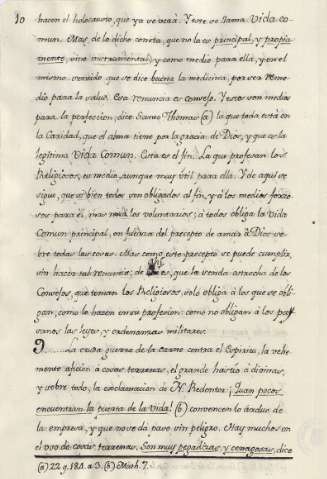 10 hacen el holocausto, que ya se verá. Y este se llama Vida co-
mun. Mas, de lo dicho consta, que no la es principal, y propia
mente, sino instrumental; y como medio para ella, y por el
mismo sentido que se dice buena la medicina, por ser reme-
dio para la salud. Esa renuncia es consejo. Y estos son medios
para la perfeccion, dice Santo Thomas (a) la que toda está en
la Caridad, que el alma tiene por la gracia de Dios, y que es la
legitima Vida Comun. Esta es el fin. La que profesan los
Religiosos, es medio, aunque muy util para ella. Y de aquí se
sigue, que si bien todos son obligados al fin, y á los medios forzo-
sos para él, mas no á los voluntarios; á todos obliga la Vida
Comun principal, en fuerza del precepto de amar á Dios so-
bre todas las cosas. Mas como este precepto se puede cumplir,
sin hacer tal renuncia; de es, que la senda estrecha de los
Consejos, que toman los Religiosos, solo obliga á los que se obli-
gan, como lo hacen en su profesion: como no obligan á los pay-
sanos las leyes, y ordenanzas militares.
La cruda guerra de la Carne contra el Espiritu, la vehe-
mente aficion á cosas terrenas, el grande hastio á divinas,
y sobre todo, la exclamacion de N. Redentor: ¡Quan pocos
encuentran la puerta de la Vida! (b) convencen lo arduo de
la empresa, y que no se dá paso sin peligro. Hay muchos en
el uso de cosas terrenas. Son muy pegadizas, y cenagosas, dice
(a) 22. q. 184. a. 3. (b) Math. 7.